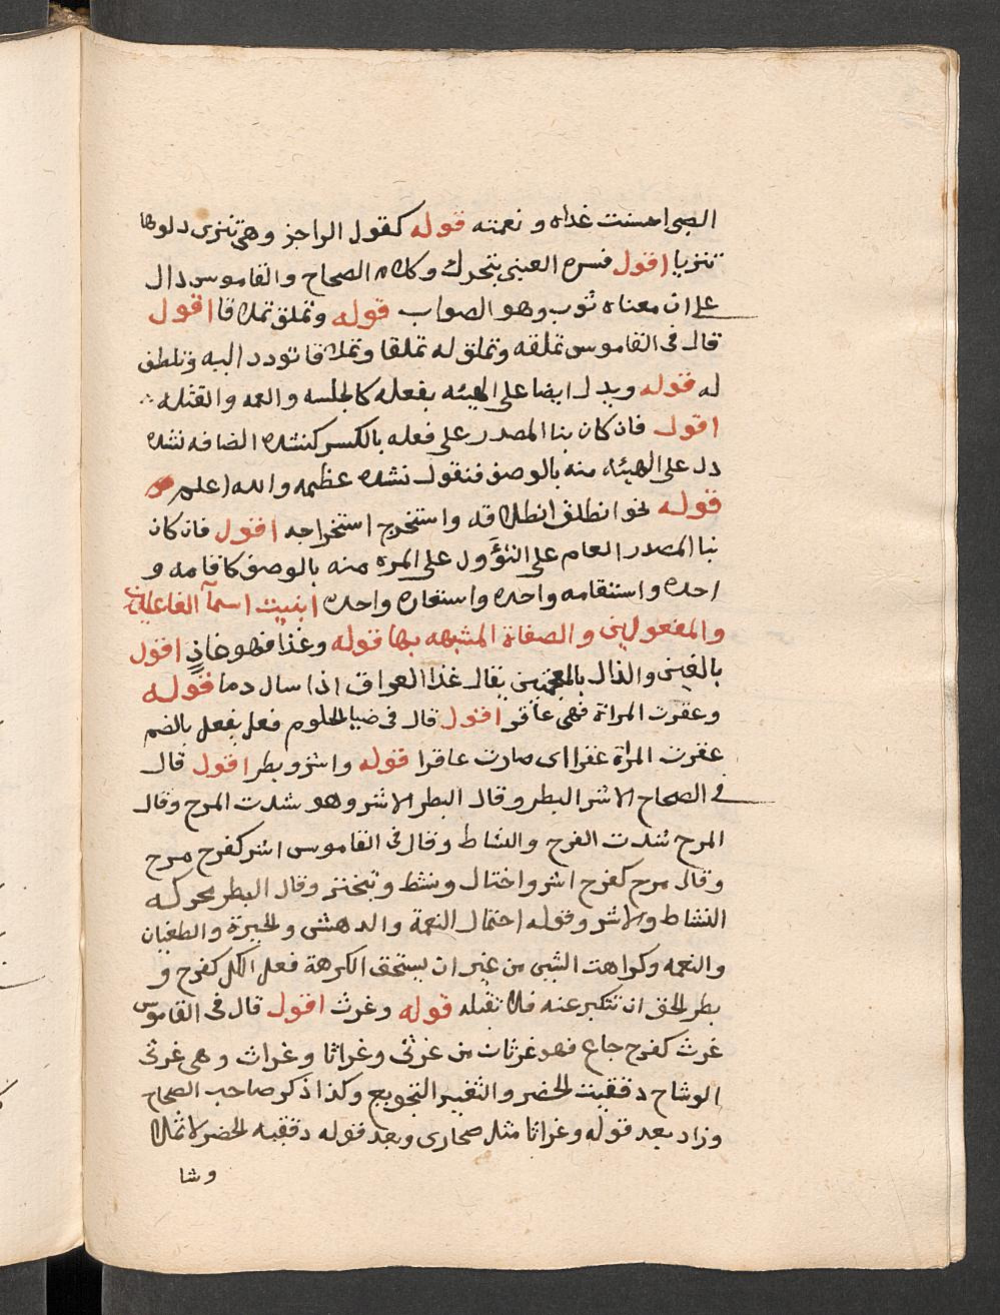 الصبي احسنت غداه و نعمته قوله كقول الراجز وهي تنزى دلوها
تنزيا اقول فسره العينى بتحرك وكلام الصحاح والقاموس دال
على ان معناه توب وهو الصواب قوله وتملق تملاقا اقول
قال فى القاموس تملقه وتملق له تملقا وتملاقا تودد اليه وتلطف
له قوله ويدل ايضا على الهيئه بفعله كالجلسه والعمه والقتله
اقول فان كان بنا المصدر على فعله بالكسر كنشده الضافه نشده
دل على الهيئه منه بالوصف فنقول نشده عظيمه والله اعلم
قوله نحو انطلق انطلاقه واستخرج استخراجه اقول فان كان
بنا المصدر العام على التؤول على المره منه بالوصف كاقامه و
احده واستقامه واحده واستعاره واحده ابنيت اسمآ الفاعلين
والمفعولين و الصفاة المشبهه بها قوله وغذا فهو غاذٍ اقول
بالغين والذال بالمعجمتين يقال غذا العراق اذا سال دما قوله
وعقرت المراة فهى عاقر اقول قال فى ضيا الحلوم فعل يفعل بالضم
عقرت المرٱة عقرا اى صارت عاقرا قوله واشر وبطر اقول قال
فى الصحاح الاشر البطر وقال البطر الاشر وهو شدت المرح وقال
المرح شدت الفرح والنشاط وقال فى القاموس اشر كفرح مرح
وقال مرح كفرح اشر واختال ونشط وتبختر وقال البطر محركه
النشاط والاشر وقوله احتمال النعمة والدهش والحيرة والطغيان
والنعمه وكراهت الشى من غير ان يستحق الكرهة فعل الكل كفرح و
بطر الحق ان تتكبر عنه فلا تقبله قوله وغرث اقول قال فى القاموس
غرث كفرح جاع فهو غرثان من غرثى وغراثا وغراث وهى غرثى
الوشاح دقيقت الخضر والتغيير التجويع وكذا ذكر صاحب الصحاح
وزاد بعد قوله وغراثا مثل صحارى وبعد قوله دقيقه الخضر لا تملا
وشا